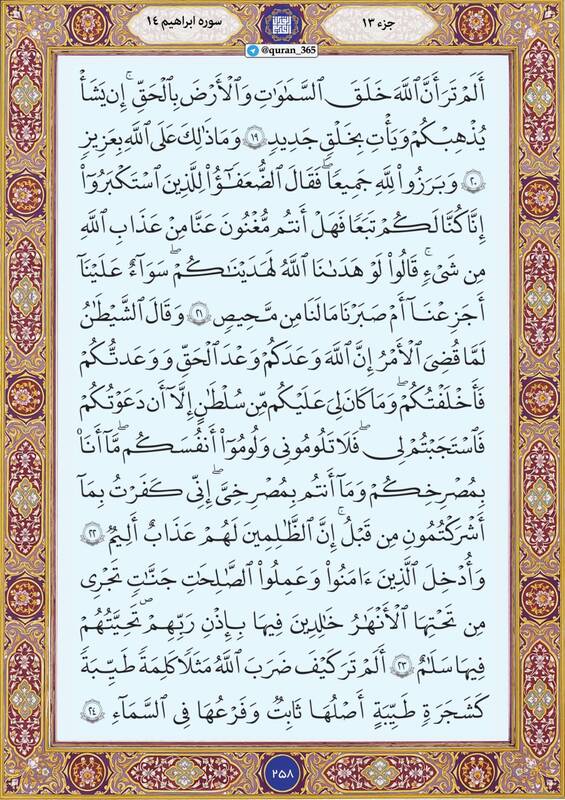 سوره ابراهیم ۱۴
جزء ۱۳
@quran_365
أَلَمْ تَرَ أَنَّ ٱللَّهَ خَلَقَ ٱلسَّمَٰوَٰتِ وَٱلْأَرْضَ بِٱلْحَقِّ ۚ إِن يَشَأْ
يُذْهِبْكُمْ وَيَأْتِ بِخَلْقٍ جَدِيدٍ ۝١٩ وَمَا ذَٰلِكَ عَلَى ٱللَّهِ بِعَزِيزٍ
۝٢٠ وَبَرَزُوا۟ لِلَّهِ جَمِيعًا فَقَالَ ٱلضُّعَفَٰٓؤُا۟ لِلَّذِينَ ٱسْتَكْبَرُوٓا۟
إِنَّا كُنَّا لَكُمْ تَبَعًا فَهَلْ أَنتُم مُّغْنُونَ عَنَّا مِنْ عَذَابِ ٱللَّهِ
مِن شَىْءٍ ۚ قَالُوا۟ لَوْ هَدَىٰنَا ٱللَّهُ لَهَدَيْنَٰكُمْ ۖ سَوَآءٌ عَلَيْنَآ
أَجَزِعْنَآ أَمْ صَبَرْنَا مَا لَنَا مِن مَّحِيصٍ ۝٢١ وَقَالَ ٱلشَّيْطَٰنُ
لَمَّا قُضِىَ ٱلْأَمْرُ إِنَّ ٱللَّهَ وَعَدَكُمْ وَعْدَ ٱلْحَقِّ وَوَعَدتُّكُمْ
فَأَخْلَفْتُكُمْ ۖ وَمَا كَانَ لِىَ عَلَيْكُم مِّن سُلْطَٰنٍ إِلَّآ أَن دَعَوْتُكُمْ
فَٱسْتَجَبْتُمْ لِى ۖ فَلَا تَلُومُونِى وَلُومُوٓا۟ أَنفُسَكُم ۖ مَّآ أَنَا۠
بِمُصْرِخِكُمْ وَمَآ أَنتُم بِمُصْرِخِىَّ ۖ إِنِّى كَفَرْتُ بِمَآ
أَشْرَكْتُمُونِ مِن قَبْلُ ۗ إِنَّ ٱلظَّٰلِمِينَ لَهُمْ عَذَابٌ أَلِيمٌ ۝٢٢
وَأُدْخِلَ ٱلَّذِينَ ءَامَنُوا۟ وَعَمِلُوا۟ ٱلصَّٰلِحَٰتِ جَنَّٰتٍ تَجْرِى
مِن تَحْتِهَا ٱلْأَنْهَٰرُ خَٰلِدِينَ فِيهَا بِإِذْنِ رَبِّهِمْ ۖ تَحِيَّتُهُمْ
فِيهَا سَلَٰمٌ ۝٢٣ أَلَمْ تَرَ كَيْفَ ضَرَبَ ٱللَّهُ مَثَلًا كَلِمَةً طَيِّبَةً
كَشَجَرَةٍ طَيِّبَةٍ أَصْلُهَا ثَابِتٌ وَفَرْعُهَا فِى ٱلسَّمَآءِ ۝٢٤
۲۵۸